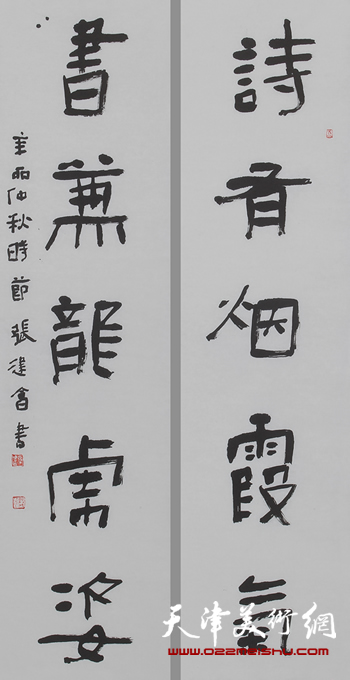 詩有烟霞氣
書兼龍虎姿
辛卯仲秋時節張建會書
天津美術網
www.022meishu.com